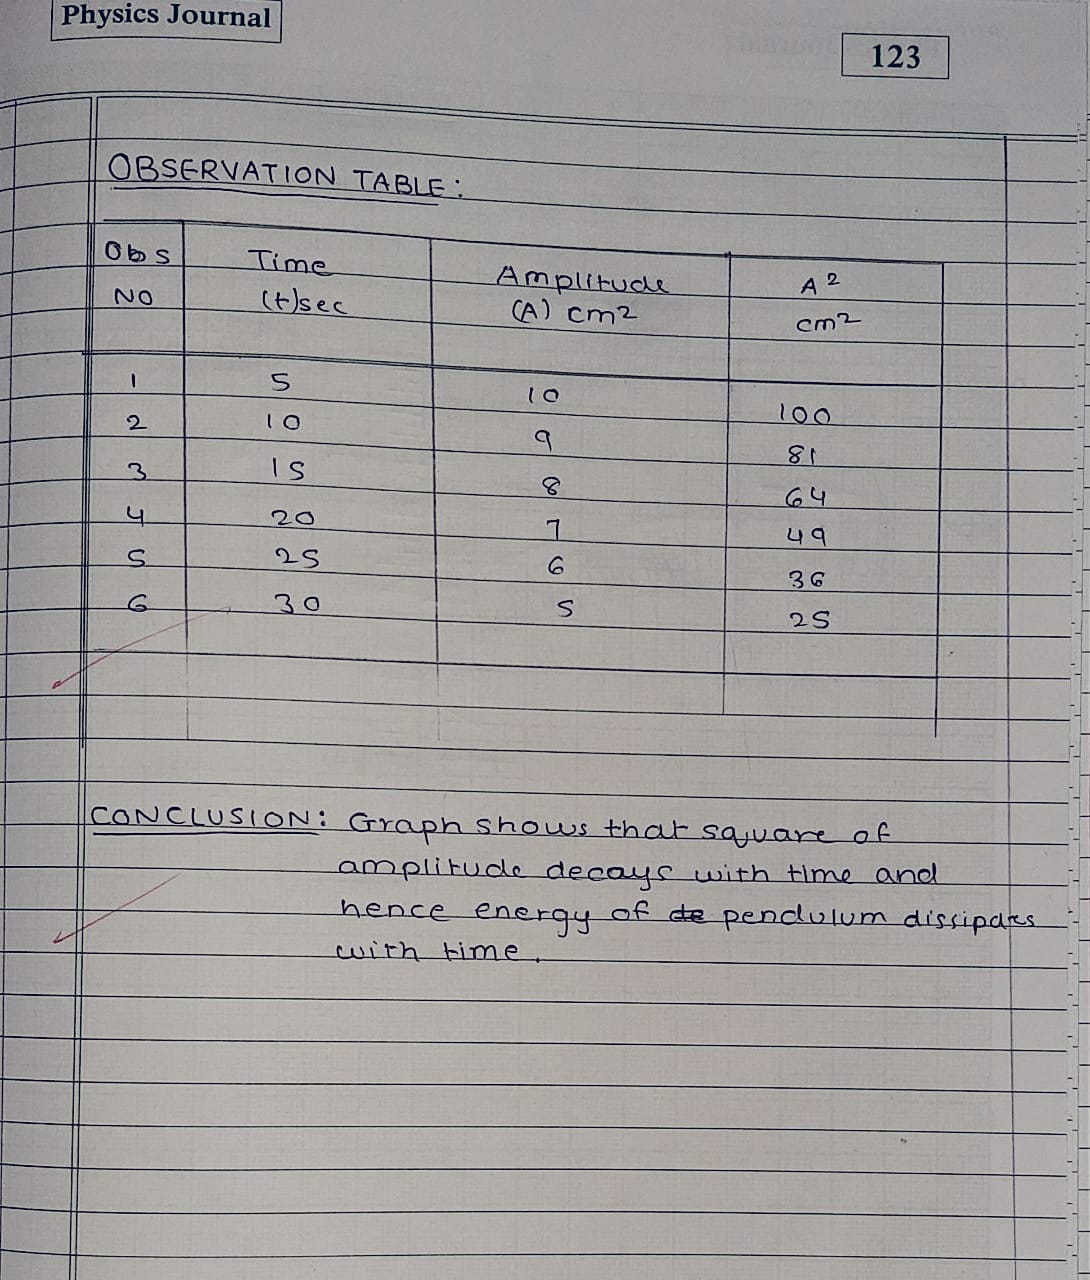 Physics Journal
123
OBSERVATION TABLE:
Obs Time Amplitude A²
NO (t)sec (A) cm² cm²
1 5 10 100
2 10 9 81
3 15 8 64
4 20 7 49
5 25 6 36
6 30 5 25
CONCLUSION: Graph shows that square of
amplitude decays with time and
hence energy of de pendulum dissipates
with time.